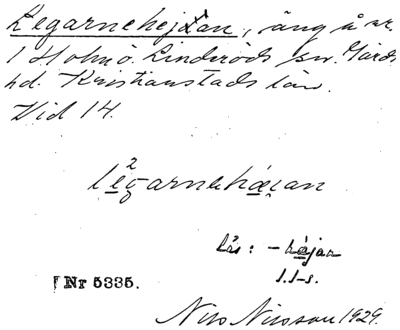 Legarnehejdan, äng å nr.
1 Holmö. Linderöds sn. Gärds
hd. Kristianstads län.
Vid 14.
2
legarnehæjan
läs: -hæjan
I. I-s.
Nr 5335.
Nils Nilsson 1929.